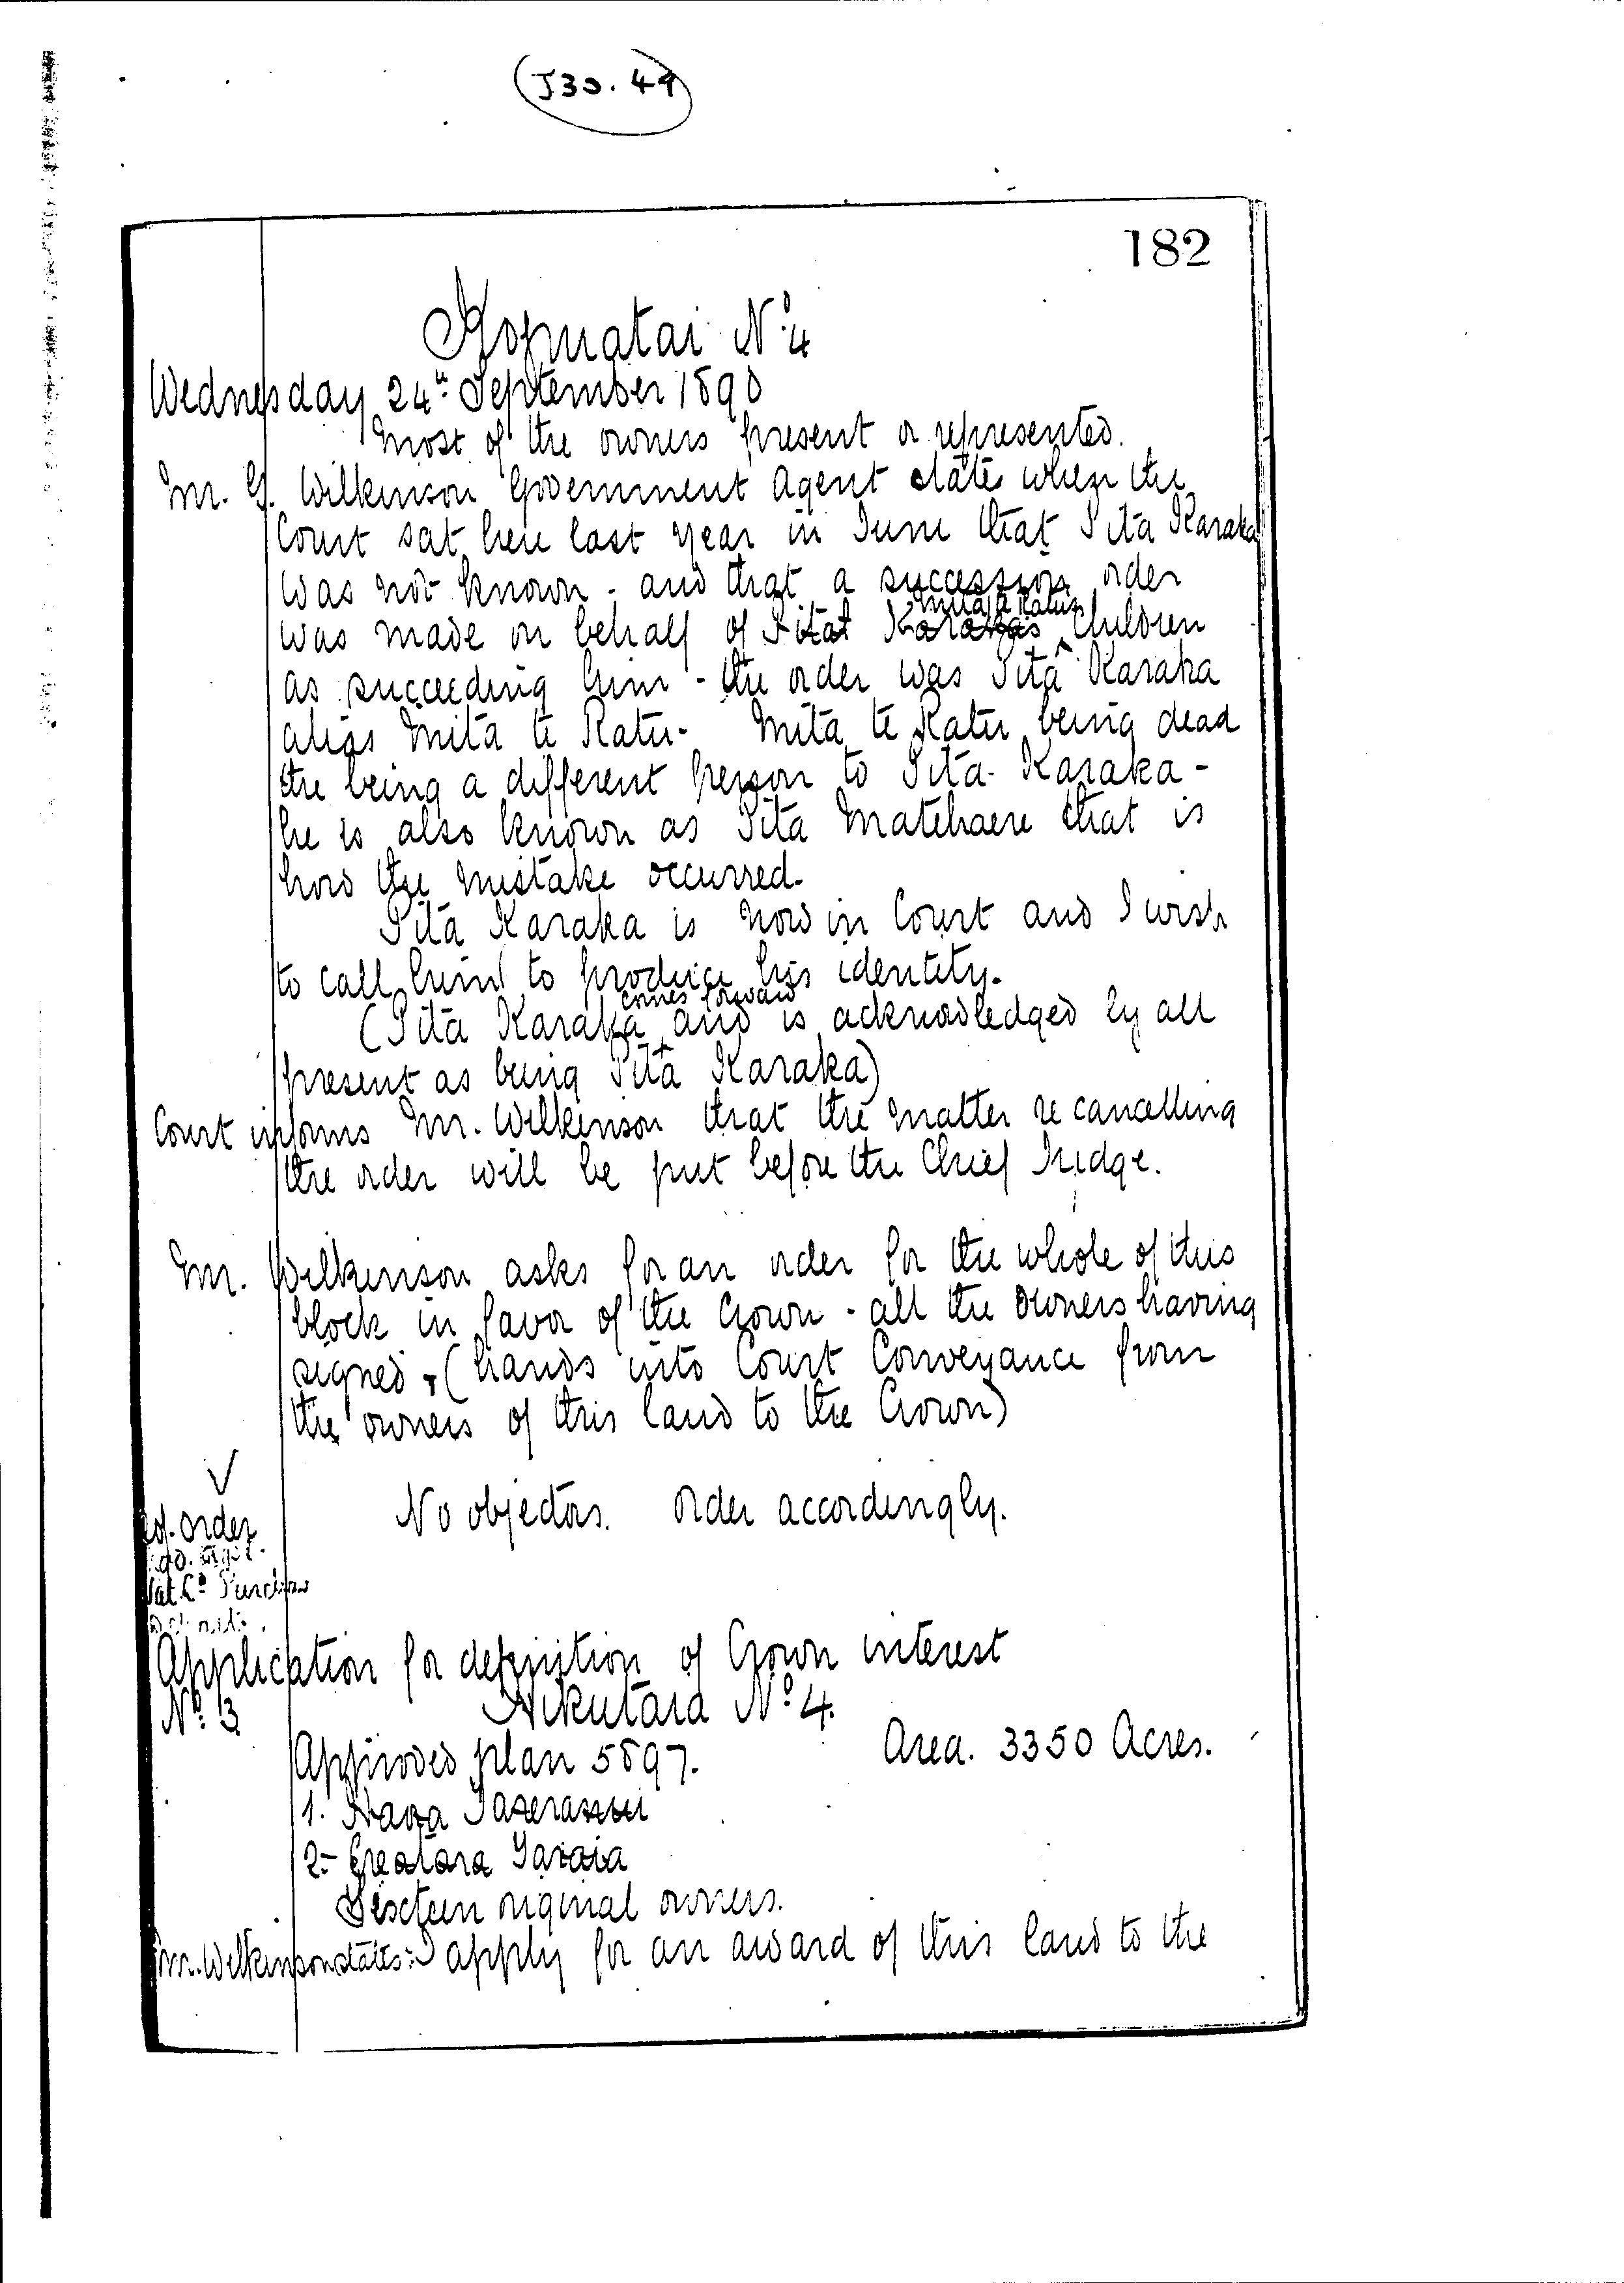 J30.49
182
Kopuatai No. 4
Wednesday 24th September 1890
Most of the owners present or represented.
Mr. G. Wilkinson Government Agent state when the
Court sat here last year in June that Pita Karaka
was not known - and that a succession order
Mita te Ratu
was made on behalf of Pita Karaka's children
as succeeding him - the order was Pita Karaka
alias Mita te Ratu - Mita te Ratu being dead
the being a different person to Pita Karaka -
he is also known as Pita Matehaere that is
how the mistake occurred.
Pita Karaka is now in Court and I wish
to call him to produce his identity.
comes forward
(Pita Karaka and is acknowledged by all
present as being Pita Karaka)
Court informs Mr. Wilkinson that the matter re cancelling
the order will be put before the Chief Judge.
Mr. Wilkinson asks for an order for the whole of this
block in favor of the Crown - all the owners having
signed. (hands into Court Conveyance from
the owners of this land to the Crown)
No objectors. Order accordingly.
order
Application for definition of Crown interest
No. 3
Hikutaia No. 4.
Approved plan 5897. Area. 3350 Acres.
1.
2.
Sixteen original owners.
Mr. Wilkinson states:- I apply for an award of this land to the